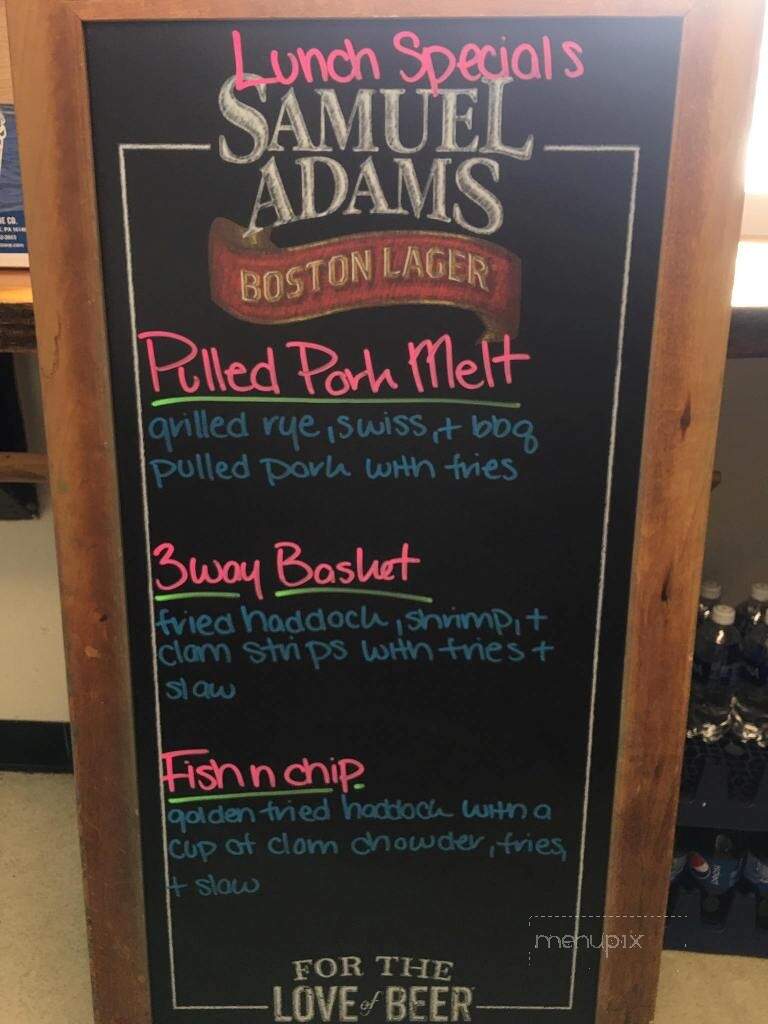 Lunch Specials
SAMUEL
ADAMS
BOSTON LAGER
Pulled Pork Melt
grilled rye, swiss, + bbq
pulled pork with fries
3way Basket
fried haddock, shrimp, +
clam strips with fries +
slaw
Fish n chip
golden fried haddock with a
cup of clam chowder, fries,
+ slaw
FOR THE
LOVE of BEER
menupix
pepsi